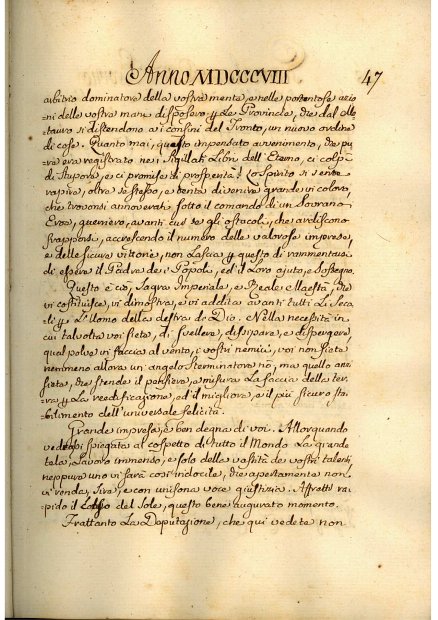 Anno MDCCCVIII 47
arbitrio dominatore della vostra mente, e nelle portentose azio
=ni della vostra mano disposero le Provincie, che dal Me
=tauro si distendono ai confini del Tronto, un nuovo ordine
di cose. Quanto mai, questo impensato avvenimento, che pu
=ra era registrato nei Sigillati Libri dell'Eterno, ci colpì
di stupore, e ci promise di prosperità! Lo Spirito si sente
rapire, oltre se stesso, e tenta divenire grande in coloro,
che trovansi annoverati sotto il comando di un Sovrano
Eroe, guerriero, avanti cui gli ostacoli, che ardiscono
frapporsi, accrescendo il numero delle valorose imprese,
e delle sicure vittorie, non lascia per questo di rammentarsi
di essere il Padre de i Popoli, ed il Loro ajuto, e Sostegno.
Questo è ciò, Sagra Imperiale, e Reale Maestà, che
vi costituisce, vi dimostra, e vi addita avanti tutti li Seco
=li per l'Uomo della destra di Dio. Nella necessità in
cui talvolta voi siete, di svellere, dissipare, e dispergere
qual polve in faccia al vento, i vostri nemici, voi non siete
nemmeno allora un angelo Sterminatore no, ma quello anzi
siete, che stende il pensiero, a misura la faccia della ter
=ra, per La reedificazione, ed il migliore, e il più sicuro sta
=bilimento dell'universale felicità.
Grande impresa, e ben degna di voi. Allorquando
vedrassi spiegata al cospetto di tutto il Mondo La grande
tela, Lavoro immenso, e solo della vastità de vostri talenti
neppure uno vi sarà così indocile, che apertamente non
vi renda, Sire, e con unisona voce giustizia. Affretti ra
=pido il corso del Sole, questo bene augurato momento.
Frattanto La Deputazione, che qui vedete non